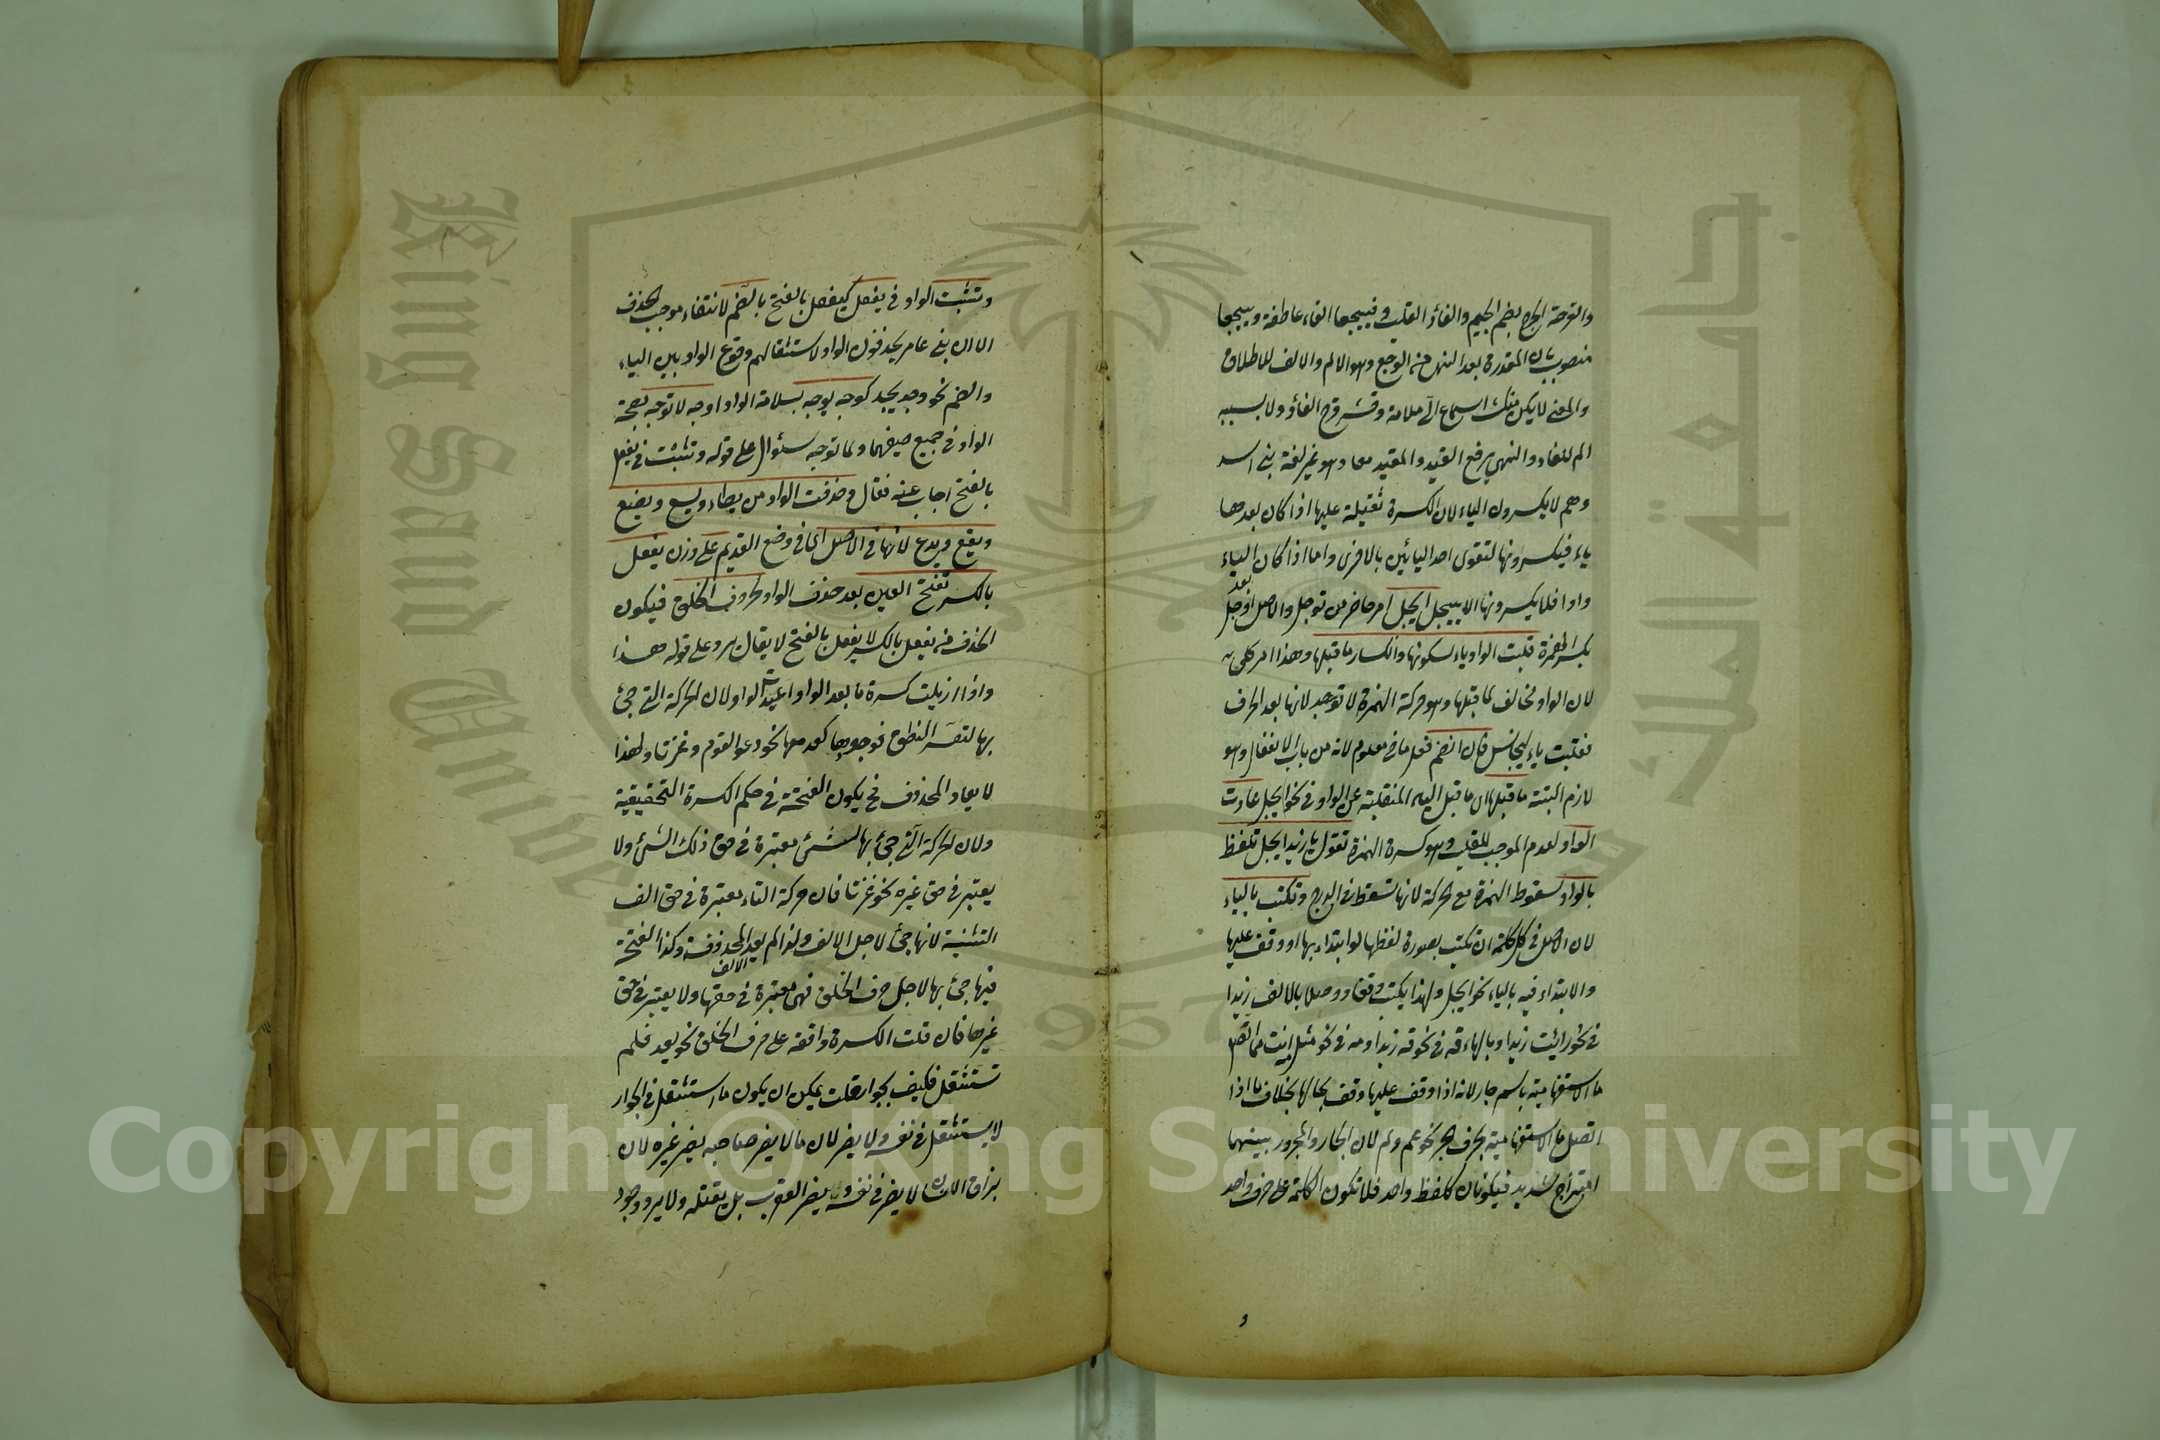 والقرحة الجرح بضم الجيم والفاؤ القلب وفييجعا الفاء عاطفة وييجعا
منصوب بان المقدرة بعد النهى من الوجع وهو الالم والالف للاطلاق
والمعنى لا يكن منك اسماع الى ملامة وقشر قرح الفاؤ ولا بسببه
الم للفاد والنهى يرفع القيد والمقيد معا وهو غير لغة بنى اسد
وهم لا يكسرون الياء لان الكسرة ثقيلة عليها اذا كان بعدها
ياء فيكسرونها لتقوى احد اليائين بالاخرى واما اذا كان بعد الياء
واوا فلا يكسرونها الا بييجل ايجل امر حاضر من توجل والاصل اوجل
بكسر الهمزة قلبت الواو ياء لسكونها وانكسار ما قبلها وهذا امر كلى
لان الواو مخالف لما قبلها وهو حركة الهمزة لا توجد لانها بعد الحرف
فقلبت ياء ليجانس فان انضم فعل ماض معلوم لانه من باب الانفعال وهو
لازم البتة ما قبلها اى ما قبل الياء المنقلبة عن الواو فى نحو ايجل عادت
الواو لعدم الموجب للقلب وهو كسرة الهمزة تقول يا زيد ايجل تلفظ
بالواو لسقوط الهمزة مع الحركة لانها تسقط فى الدرج وتكتب بالياء
لان الاصل فى كل كلمة ان تكتب بصورة لفظها لو ابتداء بها او وقف عليها
والابتداء فيه بالياء نحو ايجل ولهذا يكتب وقفا ووصلا بالالف زيدا
فى نحو رأيت زيدا وبالهاء قه فى نحو قه زيدا ومه فى نحو مثل مه انت مما اتصل
ما الاستفهامية باسم جار لانه اذا وقف عليها وقف بحالها بخلاف ما اذا
اتصل ما الاستفهامية بحرف الجر نحو عم ولم لان الجار والمجرور بينهما
امتزاج شديد فيكونان كلفظ واحد فلا تكون الكلمة على حرف واحد
و
وتثبت الواو فى يفعل كيفعل بالفتح بالضم لانتفاء موجب الحذف
الا ان بنى عامر يحذفون الواو لاستثقالهم وقوع الواو بين الياء
والضم نحو وجد يجد كوجه يوجه بسلامة الواو اوجه لا توجه بصحة
الواو فى جميع صيغهما ولما توجه سئوال على قوله وتثبت فى يفعل
بالفتح اجاب عنه فقال وحذفت الواو من يطاء ويسع ويضع
ويقع ويدع لانها فى الاصل اى فى وضع القديم على وزن يفعل
بالكسر تفتح العين بعد حذف الواو لحروف الحلق فيكون
الحذف من يفعل بالكسر لا يفعل بالفتح لا يقال يرد على قوله هذا
واذا ازيلت كسرة ما بعد الواو اعيدت الواو لان الحركة التى جئ
بها لتعسر النطق فوجودها كعدمها نحو دعوا القوم وغزتا ولهذا
لا يعاد المحذوف فح يكون الفتحة فى حكم الكسرة التحقيقية
ولان الحركة التى جئ بها لشئ معتبرة فى حق ذلك الشئ ولا
يعتبر فى حق غيره نحو غزتا فان حركة التاء معتبرة فى حق الف
التثنية لانها جئ لاجل الالف ولذا لم يعد الالف المحذوفة وكذا الفتحة
فيها جئ بها لاجل حرف الحلق فهى معتبرة فى حقها ولا يعتبر فى حق
غيرها فان قلت الكسرة واقعة على حرف الحلق نحو يعد فلم
تستثقل فكيف بجوار قلت يمكن ان يكون ما استثقل فى الجوار
لا يستثقل فى نفسه ولا يضر لان ما لا يضر صاحبه يضر غيره لان
بزاق الانسان لا يضر فى نفسه ويضر العقرب بل يقتله ولا يرد وجود
Copyright © King Saud University
جامعة الملك سعود
King Saud University
1957